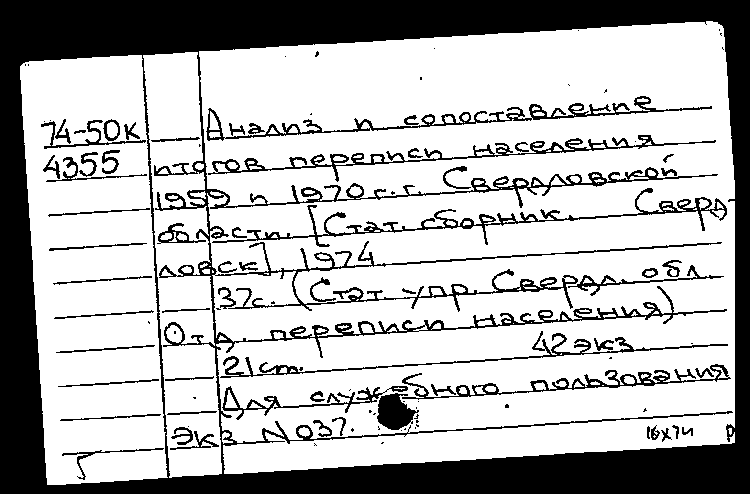 74-50к Анализ и сопоставление
4355 итогов переписи населения
1959 и 1970 г.г. Свердловской
области. [Стат. сборник. Сверд-
ловск], 1974.
37с. (Стат. упр. Свердл. обл.
Отд. переписи населения).
21 ст. 42 экз.
Для служебного пользования
Экз N 037.